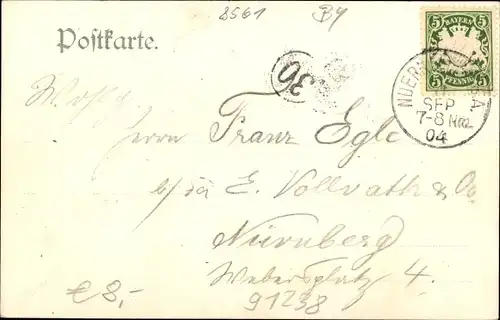 8561 BY
Postkarte.
5 BAYERN 5
5 PFENNIG 5
36
NUERN
SEP
7-8 Nm
04
Herrn Franz Egle
b/ E. Vollrath & Co.
Nürnberg
Webersplatz 4.
€ 8,-
91238